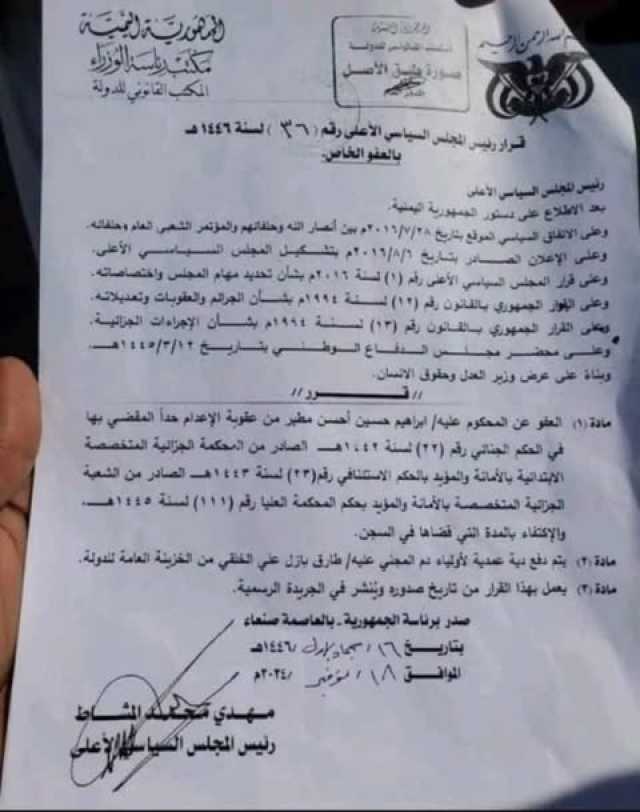 بسم الله الرحمن الرحيم
الجمهورية اليمنية
مكتب رئاسة الوزراء
المكتب القانوني للدولة
الجمهورية اليمنية
صورة طبق الأصل
قرار رئيس المجلس السياسي الأعلى رقم (٣٦) لسنة ١٤٤٦هـ
بالعفو الخاص.
رئيس المجلس السياسي الأعلى
بعد الاطلاع على دستور الجمهورية اليمنية.
وعلى الاتفاق السياسي الموقع بتاريخ ٢٠١٦/٧/٢٨م بين أنصار الله وحلفائهم والمؤتمر الشعبي العام وحلفائه.
وعلى الإعلان الصادر بتاريخ ٢٠١٦/٨/٦م بتشكيل المجلس السياسي الأعلى.
وعلى قرار المجلس السياسي الأعلى رقم (١) لسنة ٢٠١٦م بشأن تحديد مهام المجلس واختصاصاته.
وعلى القرار الجمهوري بالقانون رقم (١٢) لسنة ١٩٩٤م بشأن الجرائم والعقوبات وتعديلاته.
وعلى القرار الجمهوري بالقانون رقم (١٣) لسنة ١٩٩٤م بشأن الإجراءات الجزائية.
وعلى محضر مجلس الدفاع الوطني بتاريخ ١٤٤٥/٣/١٢هـ.
وبناءً على عرض وزير العدل وحقوق الانسان.
// قــرر //
مادة (١) العفو عن المحكوم عليه/ ابراهيم حسين أحسن مطير من عقوبة الإعدام حداً المقضي بها
في الحكم الجنائي رقم (٢٢) لسنة ١٤٤٢هـ الصادر من المحكمة الجزائية المتخصصة
الابتدائية بالأمانة والمؤيد بالحكم الاستئنافي رقم (٢٣) لسنة ١٤٤٣هـ الصادر من الشعبة
الجزائية المتخصصة بالأمانة والمؤيد بحكم المحكمة العليا رقم (١١١) لسنة ١٤٤٥هـ.
والإكتفاء بالمدة التي قضاها في السجن.
مادة (٢) يتم دفع دية عمدية لأولياء دم المجني عليه/ طارق بازل علي الخلقي من الخزينة العامة للدولة.
مادة (٣) يعمل بهذا القرار من تاريخ صدوره ويُنشر في الجريدة الرسمية.
صدر برئاسة الجمهورية - بالعاصمة صنعاء
بتاريخ ١٦ / جماد الاول / ١٤٤٦هـ
الموافق ١٨ / نوفمبر / ٢٠٢٤م
مهدي محمد المشاط
رئيس المجلس السياسي الأعلى